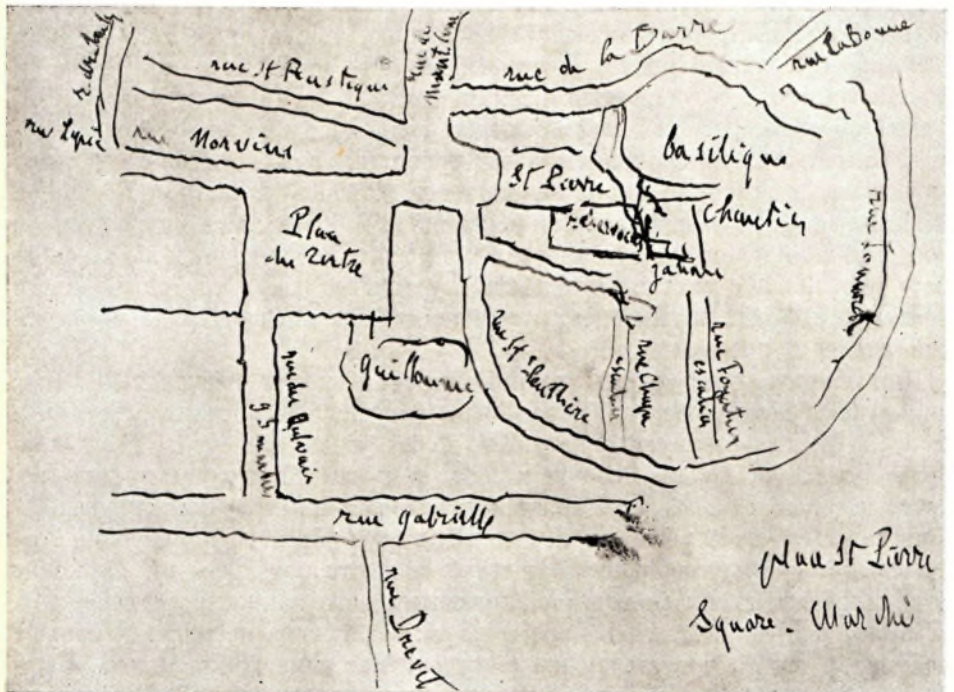 r. des Saules
rue St Rustique
rue du
Mont Cenis
rue de la Barre
rue La Bonne
rue Lepic
rue Norvins
Basilique
St Pierre
réservoir
chantier
Place
du Tertre
Jardin
Guillaume
rue St Eleuthère
rue Chappe
escalier
rue Foyatier
escalier
rue du Calvaire
95 marches
rue Gabrielle
rue Drevet
place St Pierre
Square. Marché